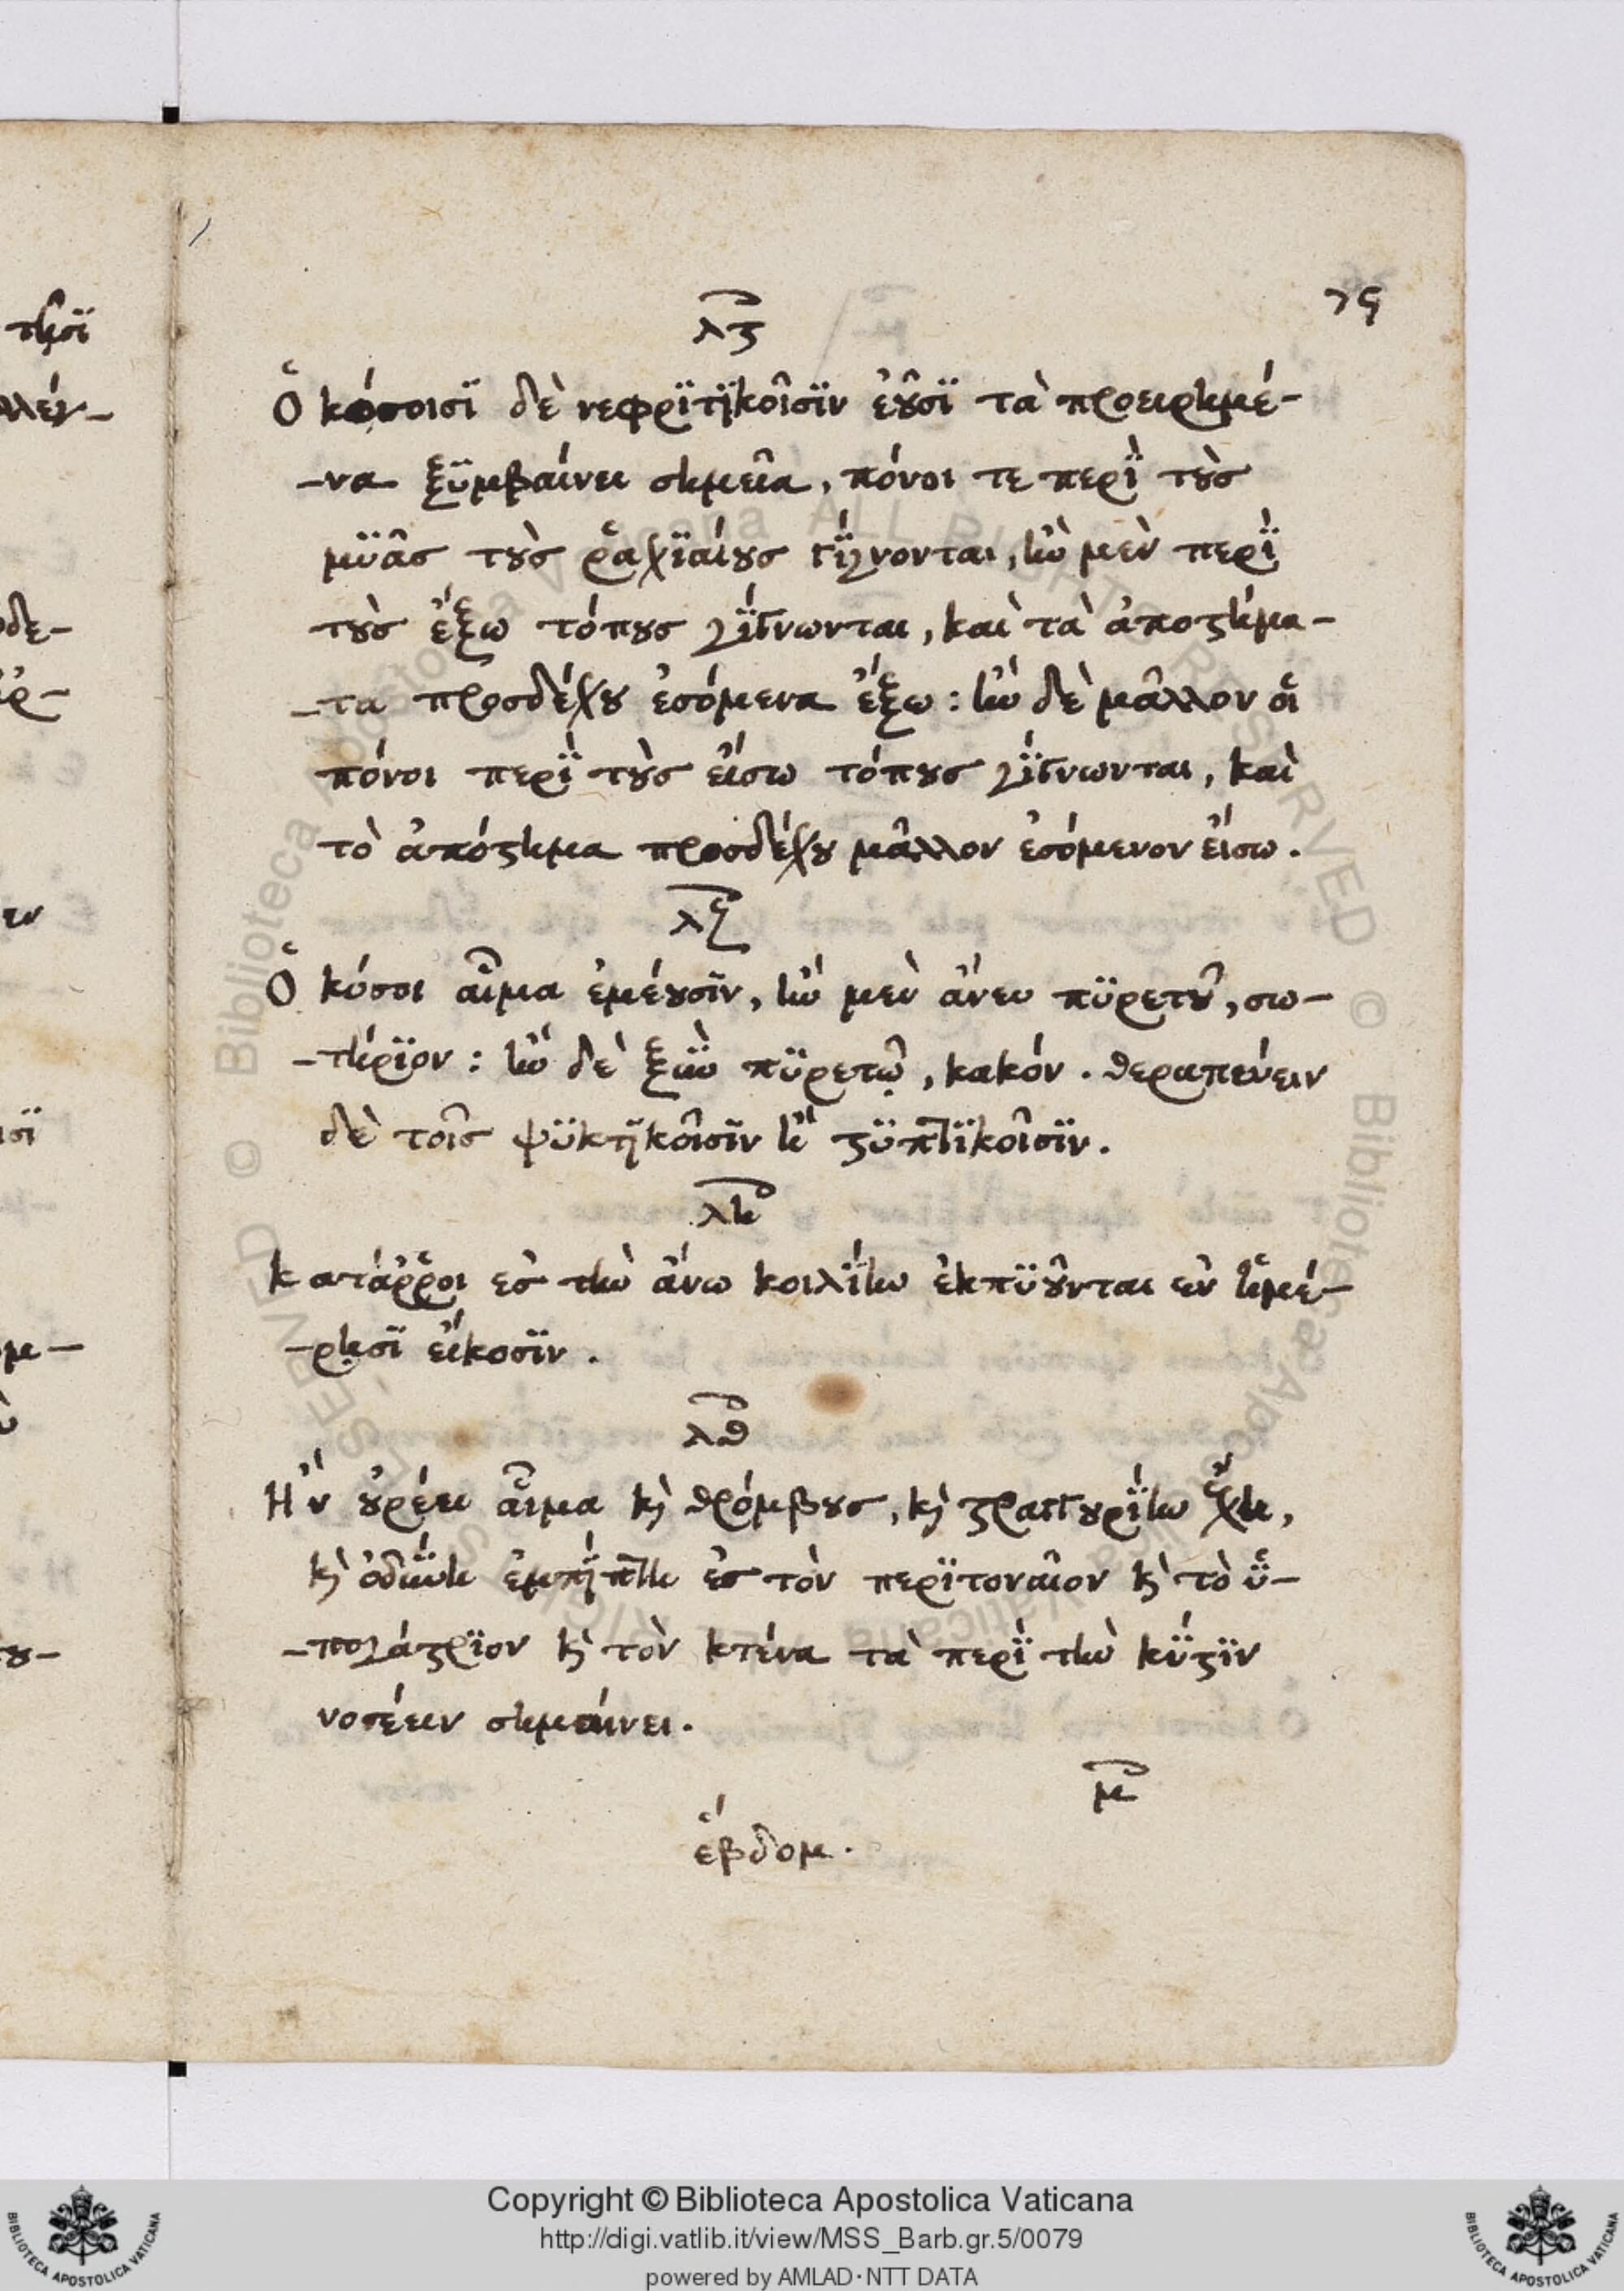 τησϊ
λλέν-
ϟϛ
λζ
Ὁκόσοισϊ δὲ νεφρϊτϊκοῖσϊν ἐοῦσϊ τὰ προειρημέ-
-να ξϋμβαίνει σημεῖα, πόνοι τε περὶ τοὺσ
μϋᾶσ τοὺσ ῥαχϊαίουσ γίγνονται, ἢν μὲν περὶ
τοὺσ ἔξω τόπουσ γίγνωνται, καὶ τὰ ἀποστήμα-
-τα προσδέχου ἐσόμενα ἔξω: ἢν δὲ μᾶλλον οἱ
πόνοι περὶ τοὺσ εἴσω τόπουσ γίγνωνται, καὶ
τὸ ἀπόστημα προσδέχου μᾶλλον ἐσόμενον εἴσω.
λη
Ὁκόσοι αἷμα ἐμέουσϊν, ἢν μὲν ἄνευ πϋρετοῦ, σω-
-τήρϊον: ἢν δὲ ξὺν πϋρετῷ, κακόν. θεραπεύειν
δὲ τοῖσ ψϋκτϊκοῖσϊν ἢ στϋπτϊκοῖσϊν.
λη
Κατάῤῥοι ἐσ τὴν ἄνω κοιλίην ἐκπϋοῦνται ἐν ἡμέ-
-ρησϊ εἴκοσϊν.
λθ
Ἢν οὐρέει αἷμα καὶ θρόμβουσ, καὶ στραγγουρίην ἔχῃ,
καὶ ὀδύνη ἐμπίπτῃ ἐσ τὸν περϊτοναῖον καὶ τὸ ὑ-
-πογάστρϊον καὶ τὸν κτένα τὰ περὶ τὴν κύστϊν
νοσέειν σημαίνει.
μ
ἕβδομ.
Copyright © Biblioteca Apostolica Vaticana
http://digi.vatlib.it/view/MSS_Barb.gr.5/0079
powered by AMLAD·NTT DATA